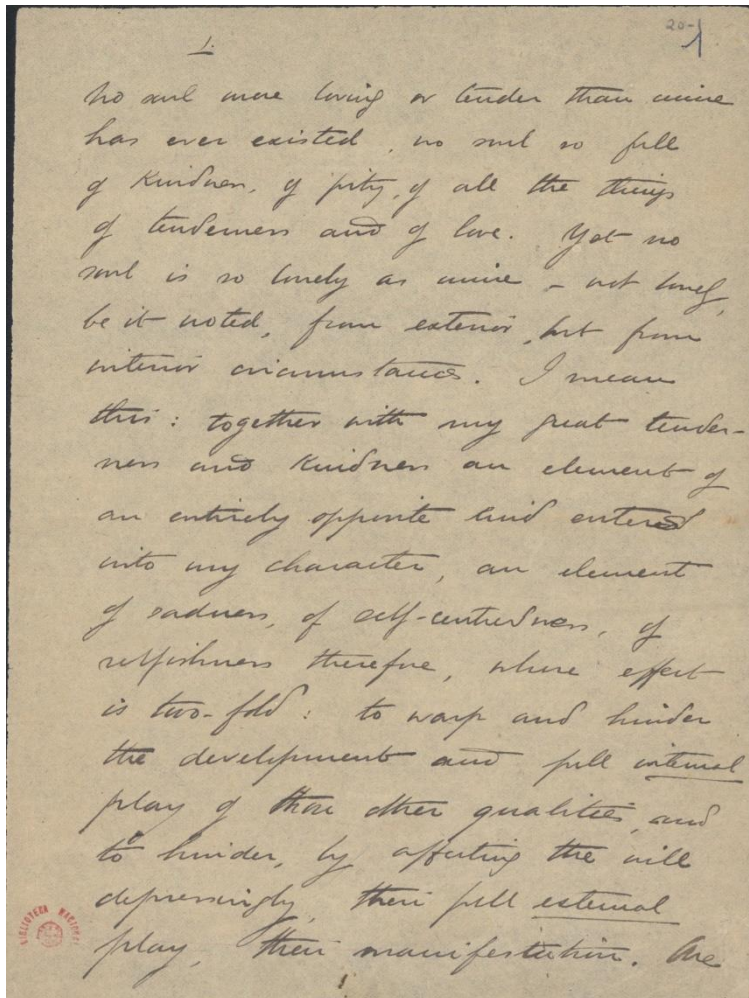 20-1
1.
No soul more loving or tender than mine
has ever existed, no soul so full
of kindness, of pity, of all the things
of tenderness and of love. Yet no
soul is so lonely as mine - not lonely,
be it noted, from exterior, but from
interior circumstances. I mean
this: together with my great tender-
ness and kindness an element of
an entirely opposite kind entered
into my character, an element
of sadness, of self-centredness, of
selfishness therefore, whose effect
is two-fold: to warp and hinder
the development and full internal
play of those other qualities, and
to hinder, by affecting the will
depressingly, their full external
play, their manifestation. One
BIBLIOTECA NACIONAL